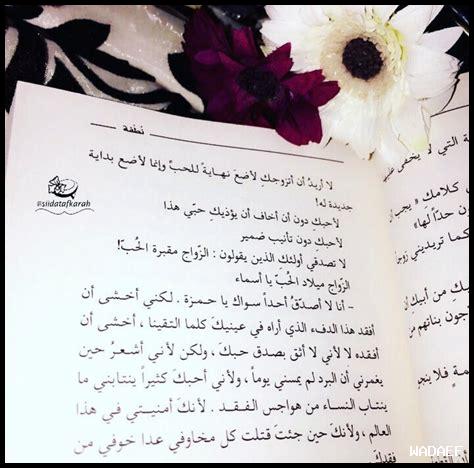 نطفة
لا أريدُ أن أتزوجكِ لأضعَ نهايةً للحبِّ وإنما لأضع بداية
جديدة له!
لأحبكِ دون أن أخاف أن يؤذيكِ حبّي هذا
لأحبكِ دون تأنيب ضمير
لا تصدقي أولئك الذين يقولون : الزّواج مقبرة الحُبّ!
الزّواج ميلاد الحُبّ يا أسماء
- أنا لا أصدّقُ أحداً سواك يا حمزة . لكني أخشى أن
أفقد هذا الدفء الذي أراه في عينيكَ كلما التقينا ، أخشى أن
أفقده لا لأني لا أثق بصدق حبكَ ، ولكن لأني أشعرُ حين
يغمرني أن البرد لم يمسني يوماً ، ولأني أحبكَ كثيراً ينتابني ما
ينتاب النساء من هواجس الفقد . لأنكَ أمنيتي في هذا
العالم ، ولأنكَ حين جئتَ قتلت كل مخاوفي عدا خوفي من
فقدكَ
@siidatafkarah
التي لا يخفى
كلامك » يجب أن
حدّاً لها»
تريديني زوجاً
من أبيكِ أن
بناتهم من
فلا ينجو
WADAEF